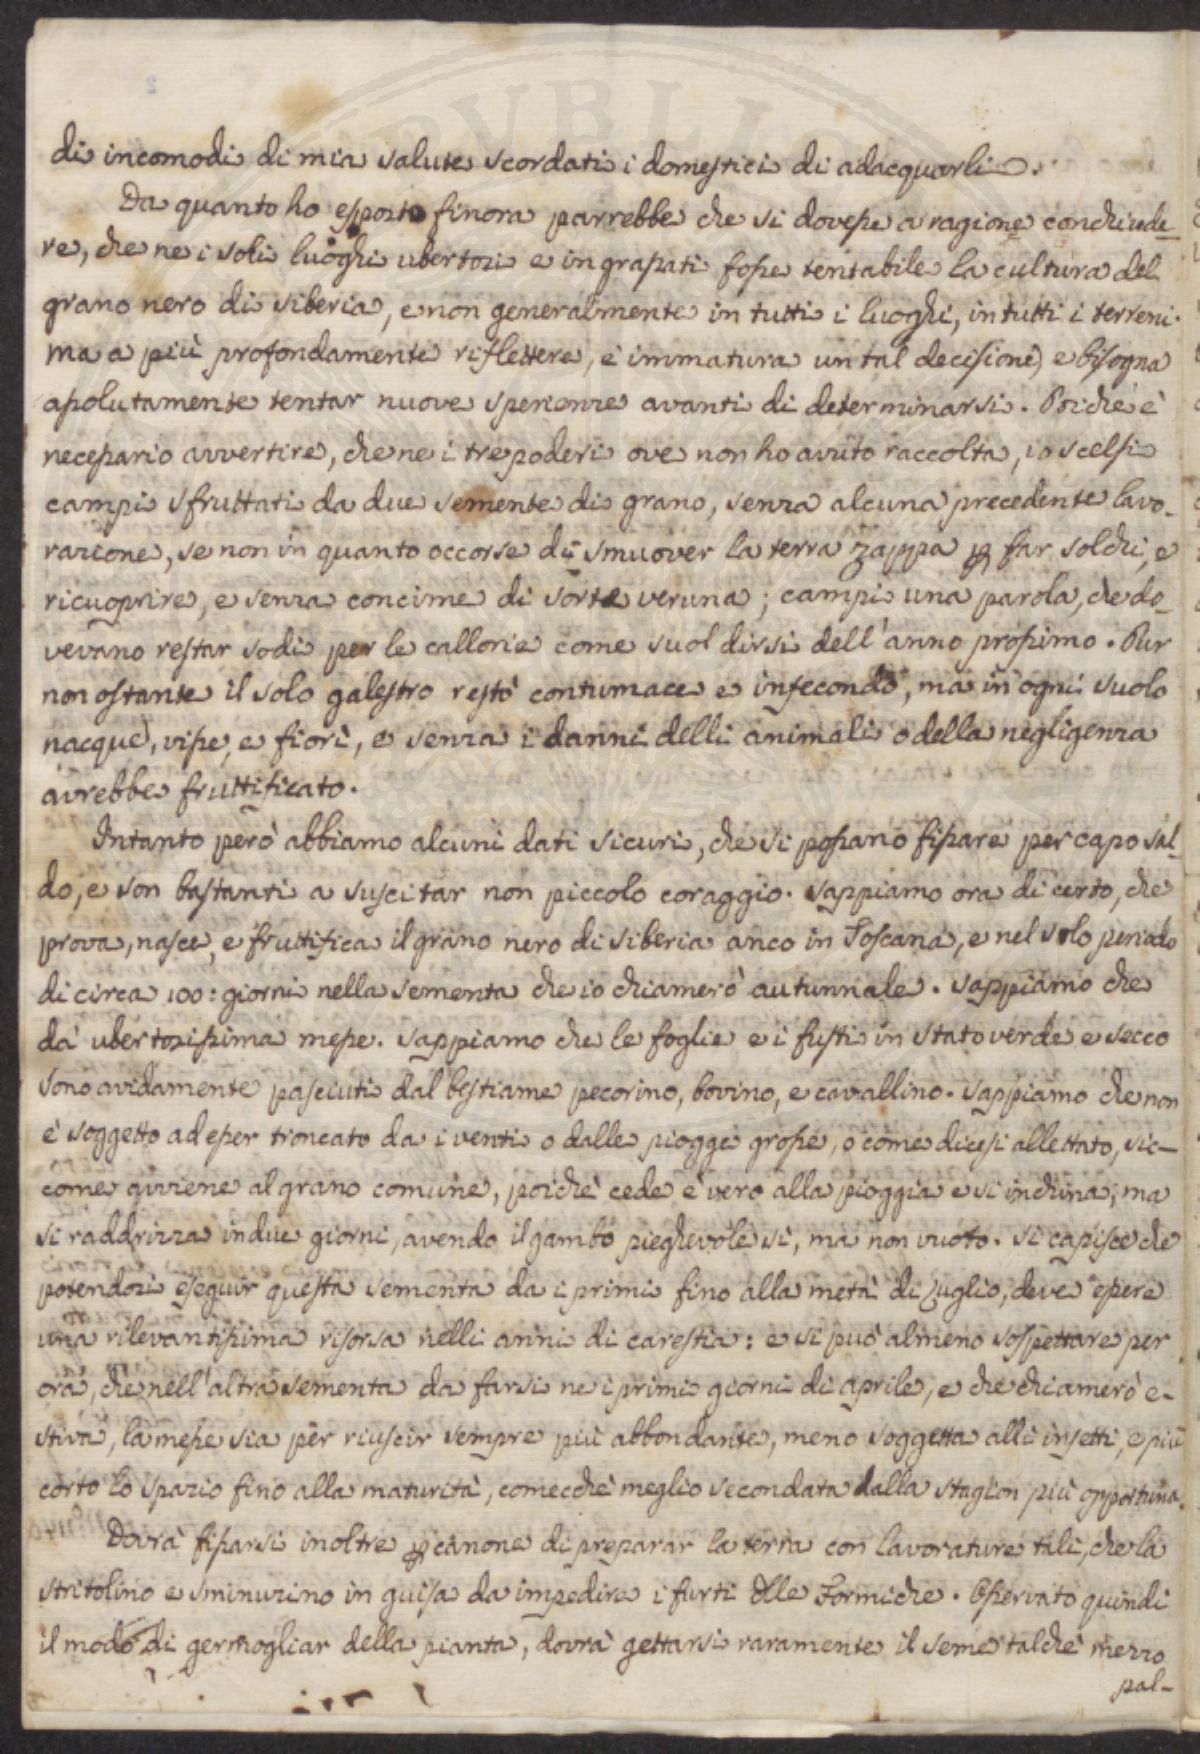 di incomodi di mia salute scordati i domestici di adacquarli.
Da quanto ho esposto finora parrebbe che si dovesse a ragione conchiude-
re, che ne i soli luoghi ubertosi e ingrassati fosse tentabile la cultura del
grano nero di siberia, e non generalmente in tutti i luoghi, in tutti i terreni.
ma a più profondamente riflettere, è immatura un tal decisione, e bisogna
assolutamente tentar nuove sperienze avanti di determinarsi. Poichè è
necessario avvertire, che ne i tre poderi ove non ho avuto raccolta, io scelsi
campi sfruttati da due semente di grano, senza alcuna precedente lavo-
razione, se non in quanto occorse di smuover la terra zappa p far solchi, e
ricuoprire, e senza concime di sorte veruna; campi una parola, che do-
vevano restar sodi per le callorie come suol dirsi dell'anno prossimo. Pur
non ostante il solo galestro restò contumace e infecondo, ma in ogni suolo
nacque, visse, e fiorì, e senza i danni delli animali o della negligenza
avrebbe fruttificato.
Intanto però abbiamo alcuni dati sicuri, che si possano fissare per capo sal-
do, e son bastanti a suscitar non piccolo coraggio. Sappiamo ora di certo, che
prova, nasce, e fruttifica il grano nero di siberia anco in Toscana, e nel solo periodo
di circa 100: giorni nella sementa che io chiamerò autunnale. Sappiamo che
dà ubertosissima messe. Sappiamo che le foglie e i fusti in stato verde e secco
sono avidamente pasciuti dal bestiame pecorino, bovino, e cavallino. Sappiamo che non
è soggetto ad esser troncato da i venti o dalle piogge grosse, o come dicesi allettato, sic-
come avviene al grano comune, poichè cede è vero alla pioggia e si inchina, ma
si raddrizza in due giorni, avendo il gambo pieghevole sì, ma non vuoto. Si capisce che
potendosi eseguir questa sementa da i primi fino alla metà di Luglio, deve essere
una rilevantissima risorsa nelli anni di carestia: e si può almeno sospettare per
ora, che nell'altra sementa da farsi ne i primi giorni di aprile, e che chiamerò e-
stiva, la messe sia per riuscir sempre più abbondante, meno soggetta alli insetti, e più
corto lo spazio fino alla maturità, comecchè meglio secondata dalla stagion più opportuna.
Dovrà fissarsi inoltre p canone di preparar la terra con lavorature tali, che la
stritolino e sminuzino in guisa da impedire i furti dlle Formiche. Osservato quindi
il modo di germogliar della pianta, dovrà gettarsi raramente il seme talchè mezzo
pal-